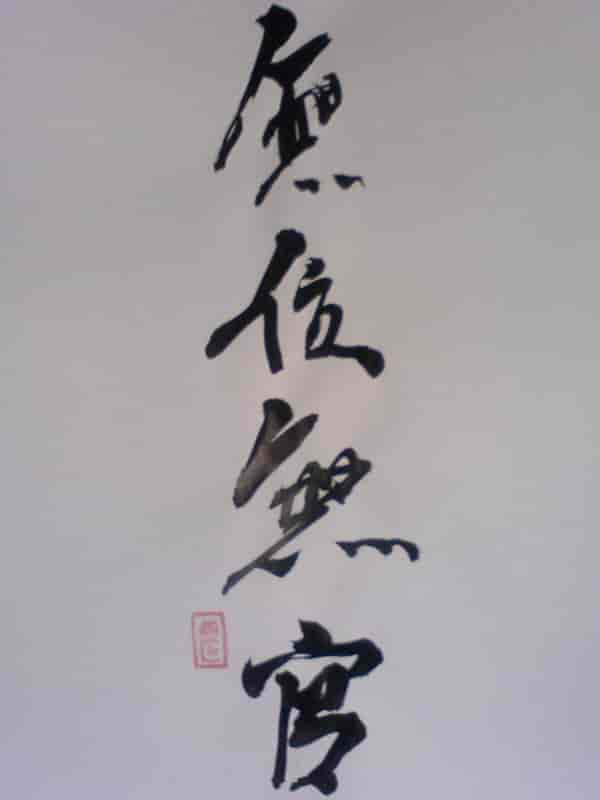 無位無官